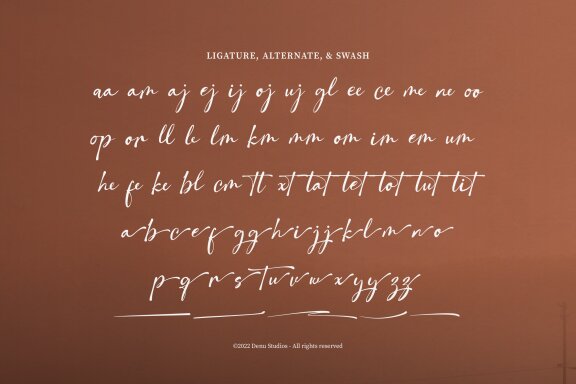 LIGATURE, ALTERNATE, & SWASH
aa am aj ej ij oj uj gl ee ce me ne oo
op or ll le lm km mm om im em um
he fe ke bl cm tl xt tat tet tot tut tit
a b c e f g g h i j j k l m n o
p q r s t u v w x y y z z
©2022 Denu Studios - All rights reserved